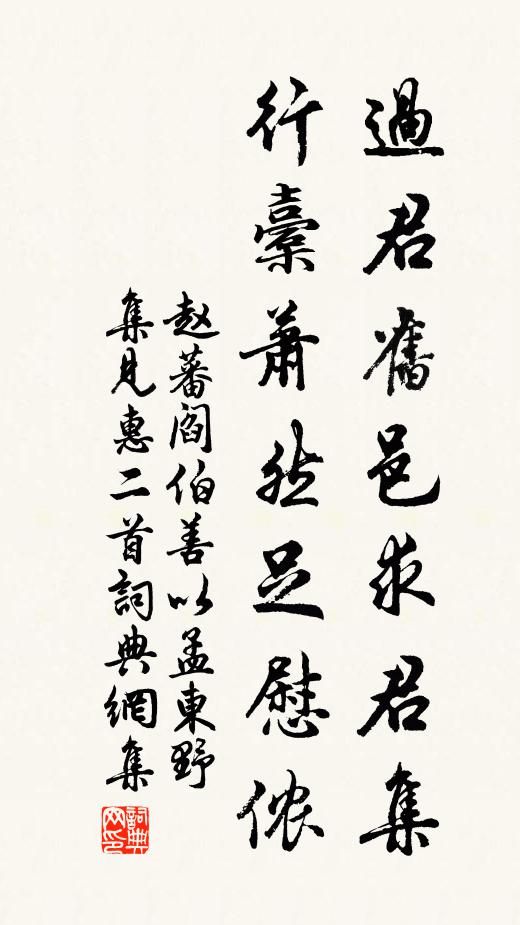 過君舊邑求君集
行橐蕭然足慰侬
赵蕃阎伯善以孟東野
集見惠二首詞典網集
詞典网印